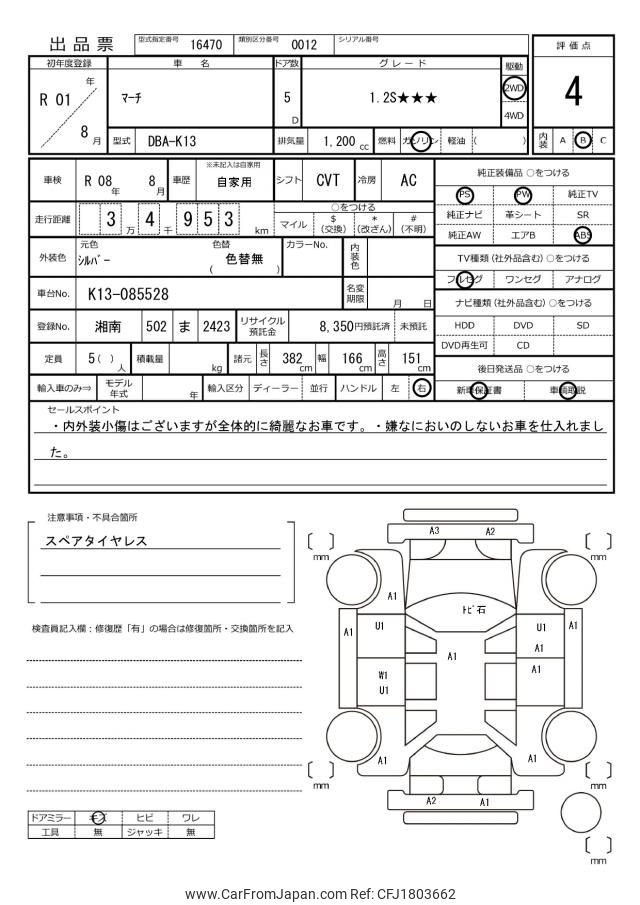 出品票 型式指定番号 16470 類別区分番号 0012 シリアル番号
評価点
初年度登録 車名 ドア数 グレード 駆動
R 01 年 8 月 マーチ 5 D 1.2S★★★ 2WD 4WD
4
型式 DBA-K13 排気量 1,200 cc 燃料 ガソリン 軽油 ( )
内装 A B C
車検 R 08 年 8 月 車歴 ※未記入は自家用 自家用 シフト CVT 冷房 AC
純正装備品 ○をつける
PS PW 純正TV
走行距離 3 万 4 千 9 5 3 km
○をつける
マイル $ (交換) * (改ざん) # (不明)
純正ナビ 革シート SR
純正AW エアB ABS
外装色 元色 シルバー 色替 ( 色替無 ) カラーNo. 内装色
TV種類 (社外品含む) ○をつける
フルセグ ワンセグ アナログ
車台No. K13-085528 名変期限 月 日
ナビ種類 (社外品含む) ○をつける
登録No. 湘南 502 ま 2423 リサイクル預託金 8,350円預託済 未預託
HDD DVD SD
DVD再生可 CD
定員 5( ) 人 積載量 kg 諸元 長さ 382 cm 幅 166 cm 高さ 151 cm
後日発送品 ○をつける
輸入車のみ⇒ モデル年式 年 輸入区分 ディーラー 並行 ハンドル 左 右
新車保証書 車輌取説
セールスポイント
・内外装小傷はございますが全体的に綺麗なお車です。・嫌なにおいのしないお車を仕入れまし
た。
注意事項・不具合箇所
スペアタイヤレス
検査員記入欄：修復歴「有」の場合は修復箇所・交換箇所を記入
A3 A2
mm mm
A1
トビ石
A1 U1 U1 A1
A1
A1
W1 A1
U1
A1 A1
mm mm
A2 A1
mm
ドアミラー キズ ヒビ ワレ
工具 無 ジャッキ 無
www.CarFromJapan.com Ref: CFJ1803662